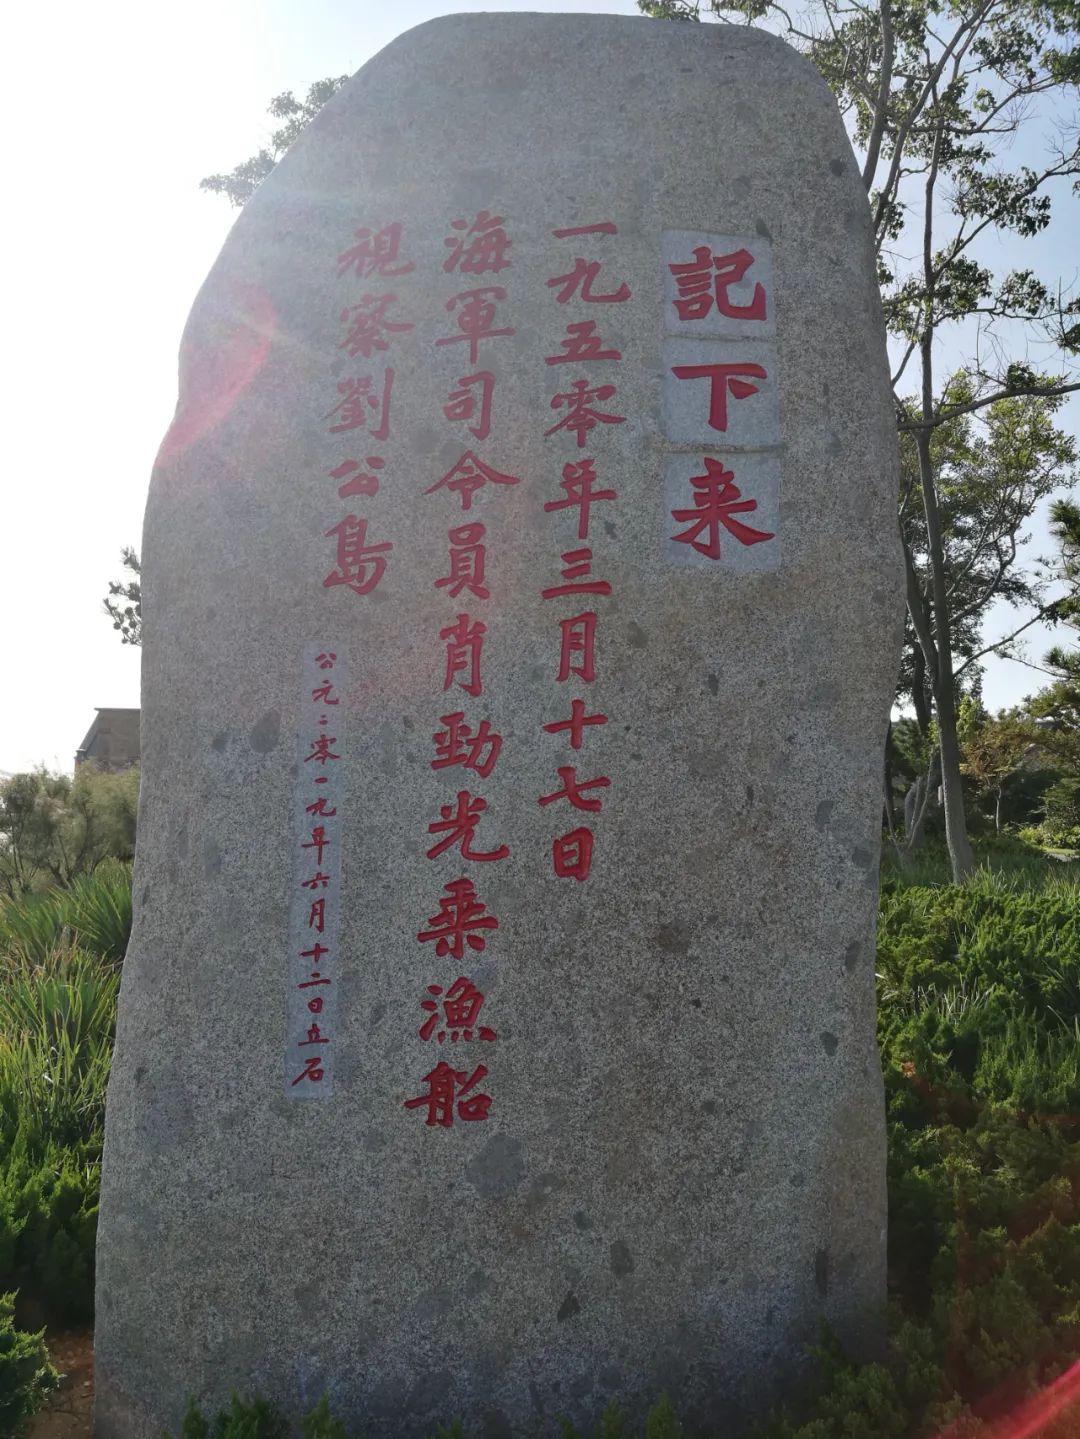 記下来
一九五零年三月十七日
海軍司令員肖勁光乘漁船
視察劉公島
公元二零一九年六月十二日立石